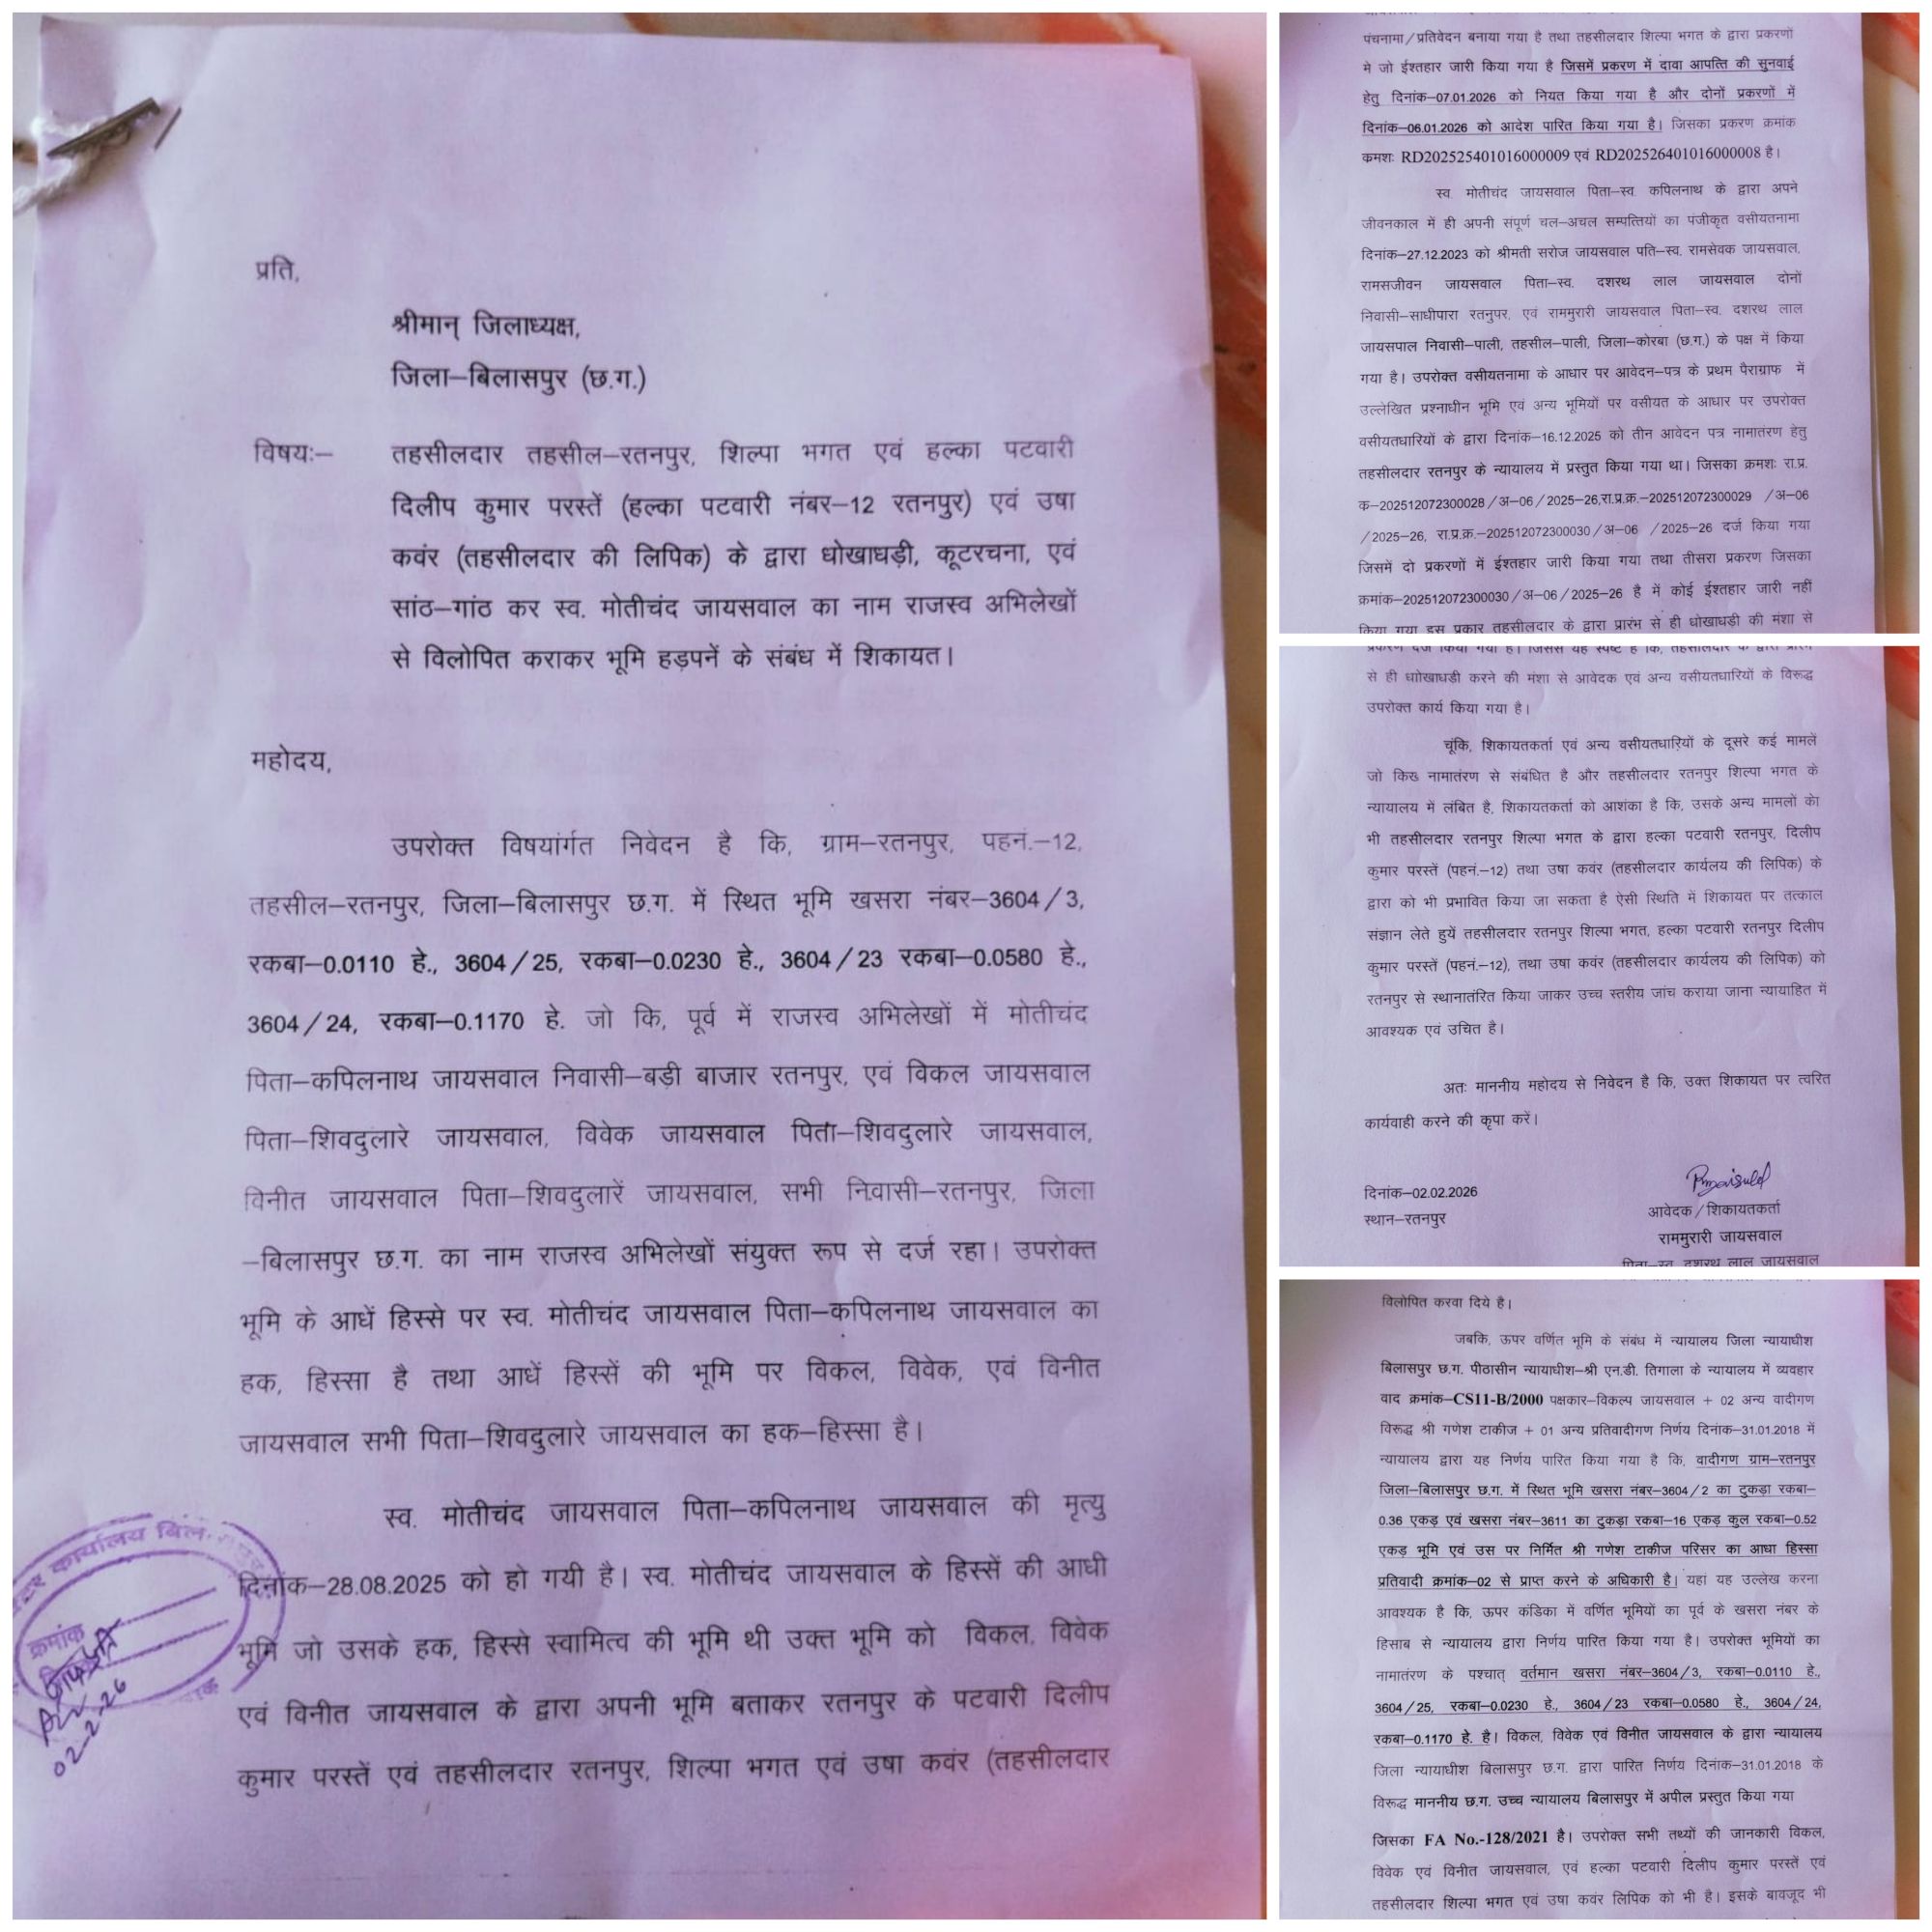 प्रति,
श्रीमान् जिलाध्यक्ष,
जिला–बिलासपुर (छ.ग.)
विषयः– तहसीलदार तहसील–रतनपुर, शिल्पा भगत एवं हल्का पटवारी
दिलीप कुमार परस्तें (हल्का पटवारी नंबर–12 रतनपुर) एवं उषा
कवंर (तहसीलदार की लिपिक) के द्वारा धोखाधड़ी, कूटरचना, एवं
सांठ–गांठ कर स्व. मोतीचंद जायसवाल का नाम राजस्व अभिलेखों
से विलोपित कराकर भूमि हड़पनें के संबंध में शिकायत।
महोदय,
उपरोक्त विषयांर्गत निवेदन है कि, ग्राम–रतनपुर, पहनं.–12,
तहसील–रतनपुर, जिला–बिलासपुर छ.ग. में स्थित भूमि खसरा नंबर–3604/3,
रकबा–0.0110 हे., 3604/25, रकबा–0.0230 हे., 3604/23 रकबा–0.0580 हे.,
3604/24, रकबा–0.1170 हे. जो कि, पूर्व में राजस्व अभिलेखों में मोतीचंद
पिता–कपिलनाथ जायसवाल निवासी–बड़ी बाजार रतनपुर, एवं विकल जायसवाल
पिता–शिवदुलारे जायसवाल, विवेक जायसवाल पिता–शिवदुलारे जायसवाल,
विनीत जायसवाल पिता–शिवदुलारें जायसवाल, सभी निवासी–रतनपुर, जिला
–बिलासपुर छ.ग. का नाम राजस्व अभिलेखों संयुक्त रूप से दर्ज रहा। उपरोक्त
भूमि के आधें हिस्से पर स्व. मोतीचंद जायसवाल पिता–कपिलनाथ जायसवाल का
हक, हिस्सा है तथा आधें हिस्सें की भूमि पर विकल, विवेक, एवं विनीत
जायसवाल सभी पिता–शिवदुलारे जायसवाल का हक–हिस्सा है।
स्व. मोतीचंद जायसवाल पिता–कपिलनाथ जायसवाल की मृत्यु
दिनांक–28.08.2025 को हो गयी है। स्व. मोतीचंद जायसवाल के हिस्सें की आधी
भूमि जो उसके हक, हिस्से स्वामित्व की भूमि थी उक्त भूमि को विकल, विवेक
एवं विनीत जायसवाल के द्वारा अपनी भूमि बताकर रतनपुर के पटवारी दिलीप
कुमार परस्तें एवं तहसीलदार रतनपुर, शिल्पा भगत एवं उषा कवंर (तहसीलदार
कार्यालय
क्रमांक
02-2-26
पंचनामा/प्रतिवेदन बनाया गया है तथा तहसीलदार शिल्पा भगत के द्वारा प्रकरणों
मे जो ईश्तहार जारी किया गया है जिसमें प्रकरण में दावा आपत्ति की सुनवाई
हेतु दिनांक–07.01.2026 को नियत किया गया है और दोनों प्रकरणों में
दिनांक–06.01.2026 को आदेश पारित किया गया है। जिसका प्रकरण क्रमांक
कमशः RD202525401016000009 एवं RD202526401016000008 है।
स्व. मोतीचंद जायसवाल पिता–स्व. कपिलनाथ के द्वारा अपने
जीवनकाल में ही अपनी संपूर्ण चल–अचल सम्पत्तियों का पंजीकृत वसीयतनामा
दिनांक–27.12.2023 को श्रीमती सरोज जायसवाल पति–स्व. रामसेवक जायसवाल,
रामसजीवन जायसवाल पिता–स्व. दशरथ लाल जायसवाल दोनों
निवासी–साधीपारा रतनुपर, एवं राममुरारी जायसवाल पिता–स्व. दशरथ लाल
जायसपाल निवासी–पाली, तहसील–पाली, जिला–कोरबा (छ.ग.) के पक्ष में किया
गया है। उपरोक्त वसीयतनामा के आधार पर आवेदन–पत्र के प्रथम पैराग्राफ में
उल्लेखित प्रश्नाधीन भूमि एवं अन्य भूमियों पर वसीयत के आधार पर उपरोक्त
वसीयतधारियों के द्वारा दिनांक–16.12.2025 को तीन आवेदन पत्र नामातरण हेतु
तहसीलदार रतनपुर के न्यायालय में प्रस्तुत किया गया था। जिसका क्रमशः रा.प्र.
क–202512072300028/अ–06/2025–26,रा.प्र.क्र.–202512072300029 /अ–06
/2025–26, रा.प्र.क्र.–202512072300030/अ–06 /2025–26 दर्ज किया गया
जिसमें दो प्रकरणों में ईश्तहार जारी किया गया तथा तीसरा प्रकरण जिसका
क्रमांक–202512072300030/अ–06/2025–26 है में कोई ईश्तहार जारी नहीं
किया गया इस प्रकार तहसीलदार के द्वारा प्रारंभ से ही धोखाधडी की मंशा से
प्रकरण दर्ज किया गया है। जिससे यह स्पष्ट है कि, तहसीलदार के द्वारा प्रारंभ
से ही धाोखाधडी करने की मंशा से आवेदक एवं अन्य वसीयतधारियों के विरूद्ध
उपरोक्त कार्य किया गया है।
चूंकि, शिकायतकर्ता एवं अन्य वसीयतधारियों के दूसरे कई मामलें
जो किख नामातंरण से संबंधित है और तहसीलदार रतनपुर शिल्पा भगत के
न्यायालय में लंबित है, शिकायतकर्ता को आशंका है कि, उसके अन्य मामलों काे
भी तहसीलदार रतनपुर शिल्पा भगत के द्वारा हल्का पटवारी रतनपुर, दिलीप
कुमार परस्तें (पहनं.–12) तथा उषा कवंर (तहसीलदार कार्यलय की लिपिक) के
द्वारा को भी प्रभावित किया जा सकता है ऐसी स्थिति में शिकायत पर तत्काल
संज्ञान लेते हुयें तहसीलदार रतनपुर शिल्पा भगत, हल्का पटवारी रतनपुर दिलीप
कुमार परस्तें (पहनं.–12), तथा उषा कवंर (तहसीलदार कार्यलय की लिपिक) को
रतनपुर से स्थानातंरित किया जाकर उच्च स्तरीय जांच कराया जाना न्यायाहित में
आवश्यक एवं उचित है।
अतः माननीय महोदय से निवेदन है कि, उक्त शिकायत पर त्वरित
कार्यवाही करने की कृपा करें।
दिनांक–02.02.2026
स्थान–रतनपुर
आवेदक/शिकायतकर्ता
राममुरारी जायसवाल
पिता–स्व. दशरथ लाल जायसवाल
विलोपित करवा दिये है।
जबकि, ऊपर वर्णित भूमि के संबंध में न्यायालय जिला न्यायाधीश
बिलासपुर छ.ग. पीठासीन न्यायाधीश–श्री एन.डी. तिगाला के न्यायालय में व्यवहार
वाद क्रमांक–CS11-B/2000 पक्षकार–विकल्प जायसवाल + 02 अन्य वादीगण
विरूद्ध श्री गणेश टाकीज + 01 अन्य प्रतिवादीगण निर्णय दिनांक–31.01.2018 में
न्यायालय द्वारा यह निर्णय पारित किया गया है कि, वादीगण ग्राम–रतनपुर
जिला–बिलासपुर छ.ग. में स्थित भूमि खसरा नंबर–3604/2 का टुकड़ा रकबा–
0.36 एकड़ एवं खसरा नंबर–3611 का टुकड़ा रकबा–16 एकड़ कुल रकबा–0.52
एकड़ भूमि एवं उस पर निर्मित श्री गणेश टाकीज परिसर का आधा हिस्सा
प्रतिवादी क्रमांक–02 से प्राप्त करने के अधिकारी है। यहां यह उल्लेख करना
आवश्यक है कि, ऊपर कंडिका में वर्णित भूमियों का पूर्व के खसरा नंबर के
हिसाब से न्यायालय द्वारा निर्णय पारित किया गया है। उपरोक्त भूमियों का
नामातंरण के पश्चात् वर्तमान खसरा नंबर–3604/3, रकबा–0.0110 हे.,
3604/25, रकबा–0.0230 हे., 3604/23 रकबा–0.0580 हे., 3604/24,
रकबा–0.1170 हे. है। विकल, विवेक एवं विनीत जायसवाल के द्वारा न्यायालय
जिला न्यायाधीश बिलासपुर छ.ग. द्वारा पारित निर्णय दिनांक–31.01.2018 के
विरूद्ध माननीय छ.ग. उच्च न्यायालय बिलासपुर में अपील प्रस्तुत किया गया
जिसका FA No.-128/2021 है। उपरोक्त सभी तथ्यों की जानकारी विकल,
विवेक एवं विनीत जायसवाल, एवं हल्का पटवारी दिलीप कुमार परस्तें एवं
तहसीलदार शिल्पा भगत एवं उषा कवंर लिपिक को भी है। इसके बावजूद भी